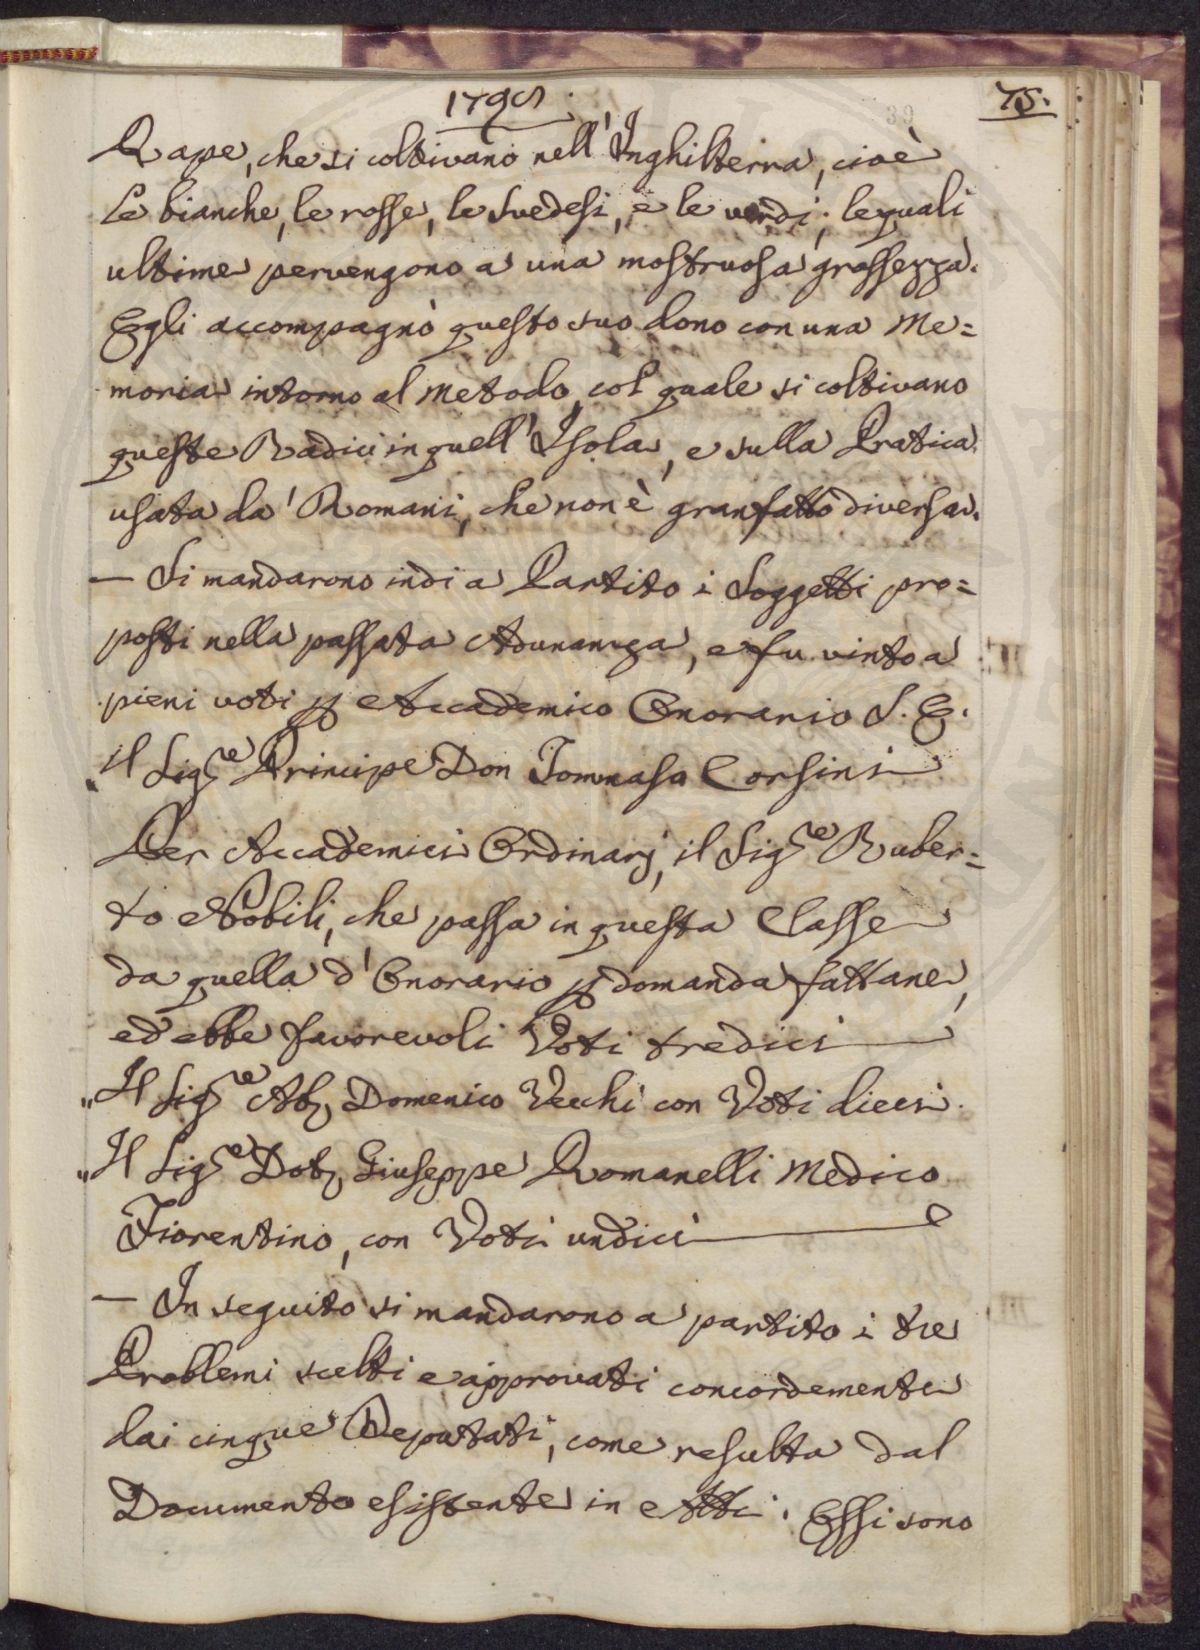 1795.
75.
Rape, che si coltivano nell'Inghilterra, cioè
Le bianche, le rosse, le Svedesi, e le verdi; le quali
ultime pervengono a una mostruosa grossezza.
Egli accompagnò questo suo dono con una Me=
moria intorno al metodo, col quale si coltivano
queste Radici in quell'Isola, e sulla Pratica
usata da' Romani, che non è granfatto diversa.
— Si mandarono indi a Partito i Soggetti pro=
posti nella passata Adunanza, e fu vinto a
pieni voti p Accademico Onorario S. E.
"il Sig.re Principe Don Tommaso Corsini
Per Accademici Ordinarj, il Sig.re Ruber=
to Nobili, che passa in questa Classe
da quella d'Onorario p domanda fattane,
ed ebbe favorevoli Voti tredici
"Il Sig.re Ab. Domenico Vecchi con Voti dieci.
"Il Sig.re Dot. Giuseppe Romanelli Medico
Fiorentino, con Voti undici
— In seguito si mandarono a partito i tre
Problemi scelti e approvati concordemente
dai cinque Deputati, come resulta dal
Documento esistente in Atti. Essi sono